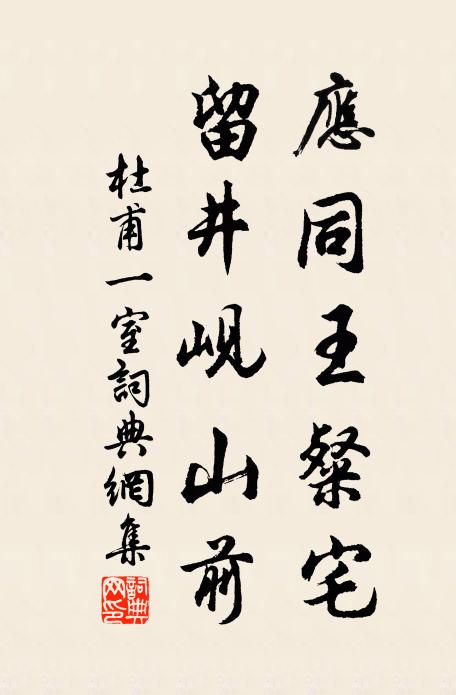 應同王粲宅
留井峴山前
杜甫一室詞典網集
詞典网印